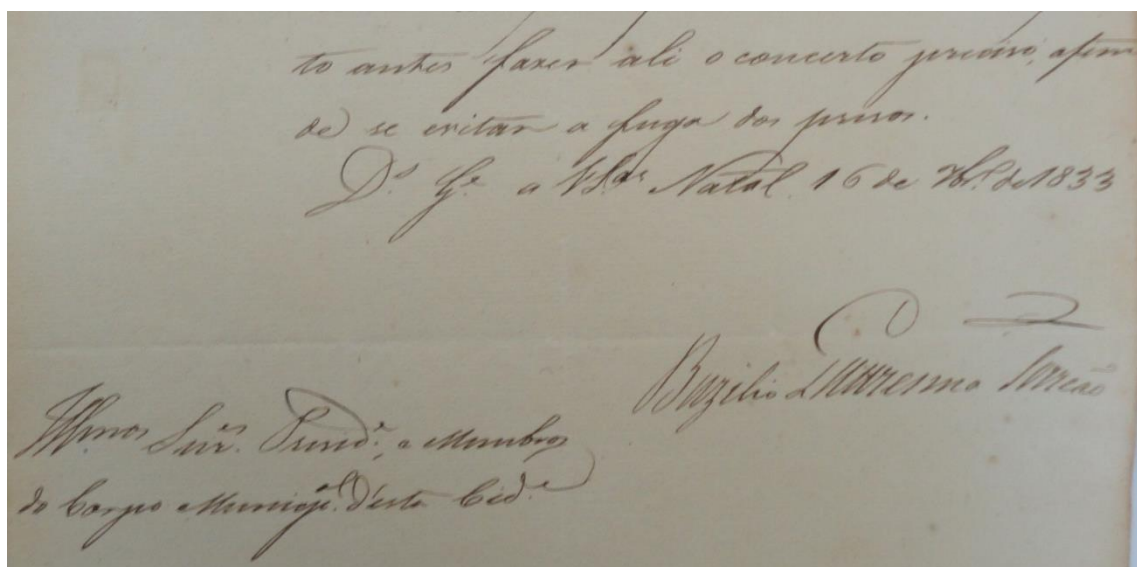 to antes fazer ali o concerto preciso, afim
de se evitar a fuga dos presos.
D.s G.e a V.S.as Natal 16 de 7br.o de 1833
Bazilio Quaresma Torreão
Illmos Snrs. Presid.e, e Membros
do Corpo Municip.al d'esta Cid.e